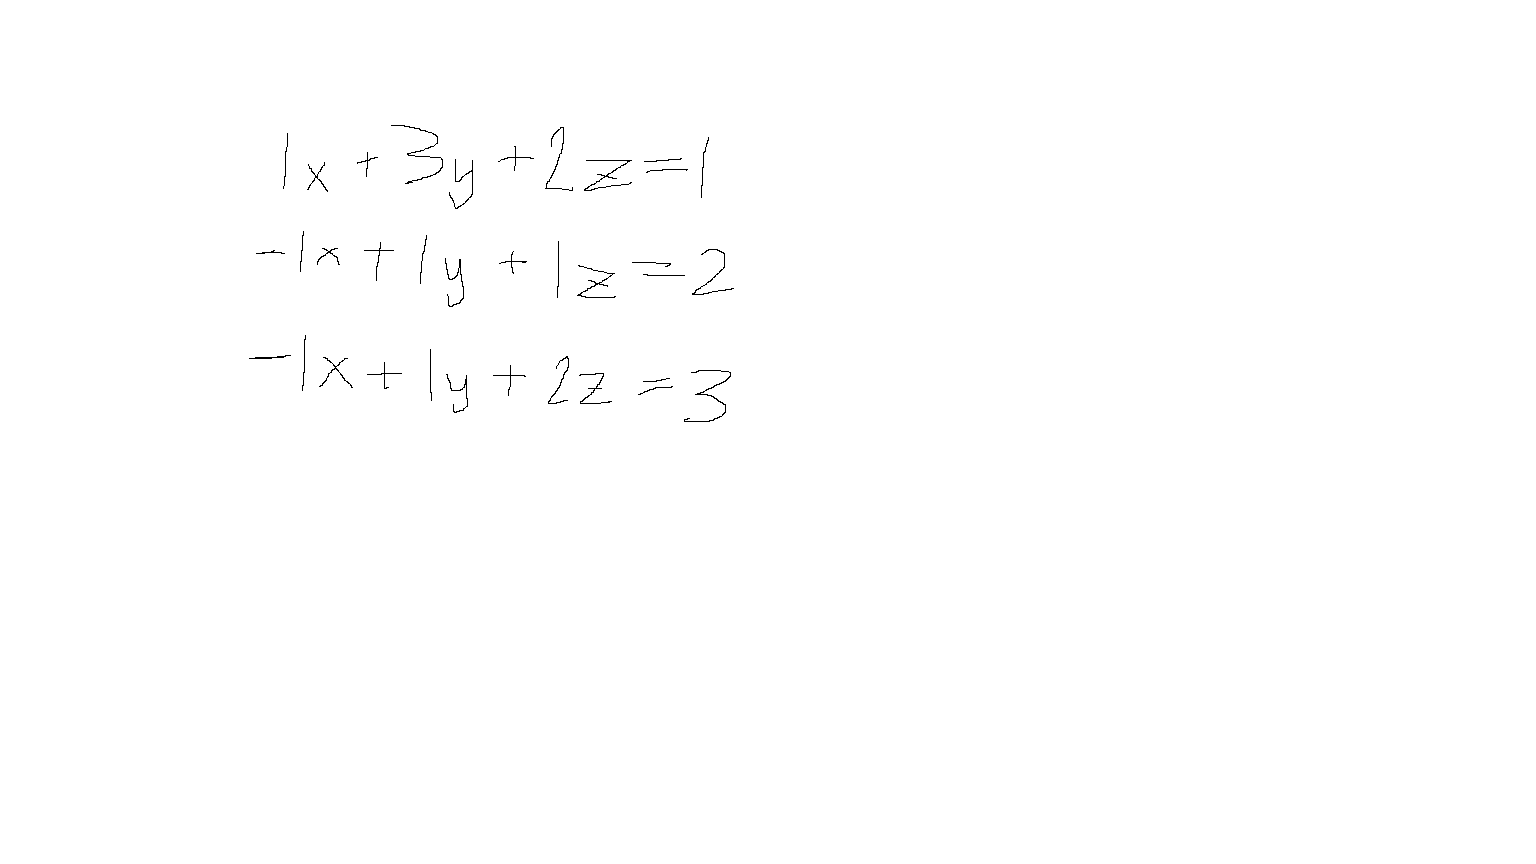 1x + 3y + 2z = 1
-1x + 1y + 1z = 2
-1x + 1y + 2z = 3